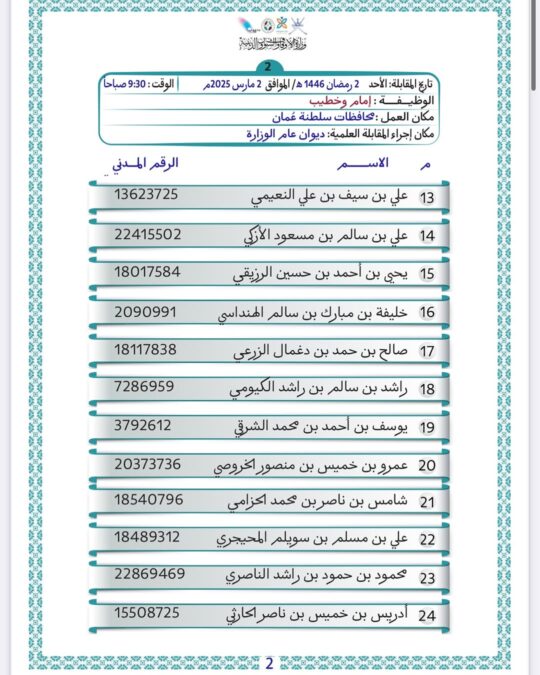 وزارة الأوقاف والشؤون الدينية
2
تاريخ المقابلة: الأحد 2 رمضان 1446 هـ/ الموافق 2 مارس 2025م الوقت : 9:30 صباحا
الوظيفـــة : إمام وخطيب
مكان العمل : محافظات سلطنة عُمان
مكان إجراء المقابلة العلمية: ديوان عام الوزارة
م الاســـم الرقم المـدني
13 علي بن سيف بن علي النعيمي 13623725
14 علي بن سالم بن مسعود الأزكي 22415502
15 يحيى بن أحمد بن حسين الرزيقي 18017584
16 خليفة بن مبارك بن سالم الهنداسي 2090991
17 صالح بن حمد بن دغمال الزرعي 18117838
18 راشد بن سالم بن راشد الكيومي 7286959
19 يوسف بن أحمد بن محمد الشرقي 3792612
20 عمرو بن خميس بن منصور الخروصي 20373736
21 شامس بن ناصر بن محمد الحزامي 18540796
22 علي بن مسلم بن سويلم المحيجري 18489312
23 محمود بن حمود بن راشد الناصري 22869469
24 أدريس بن خميس بن ناصر الحارثي 15508725
2